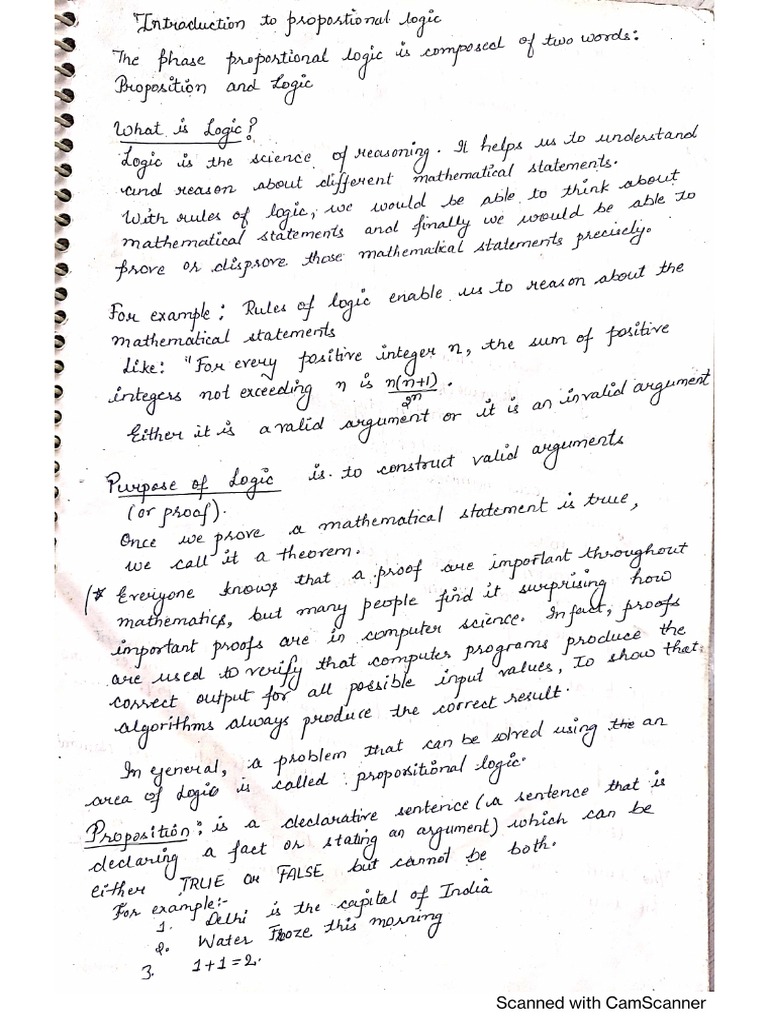 Introduction to propostional logic
The phase proportional logic is composed of two words:
Proposition and Logic
What is Logic?
Logic is the science of reasoning. It helps us to understand
and reason about different mathematical statements.
With rules of logic, we would be able to think about
mathematical statements and finally we would be able to
prove or disprove those mathematical statements precisely.
For example: Rules of logic enable us to reason about the
mathematical statements
Like: "For every positive integer n, the sum of positive
integers not exceeding n is n(n+1)/2n.
Either it is a valid argument or it is an invalid argument
Purpose of Logic is to construct valid arguments
(or proof).
Once we prove a mathematical statement is true,
we call it a theorem.
(* Everyone knows that a proof are important throughout
mathematics, but many people find it surprising how
important proofs are in computer science. Infact, proofs
are used to verify that computer programs produce the
correct output for all possible input values, To show that
algorithms always produce the correct result.
In general, a problem that can be solved using the an
area of Logic is called propositional logic.
Proposition: is a declarative sentence (a sentence that is
declaring a fact or stating an argument) which can be
either TRUE or FALSE but cannot be both.
For example:-
1. Delhi is the capital of India
2. Water Froze this morning
3. 1+1=2.
Scanned with CamScanner